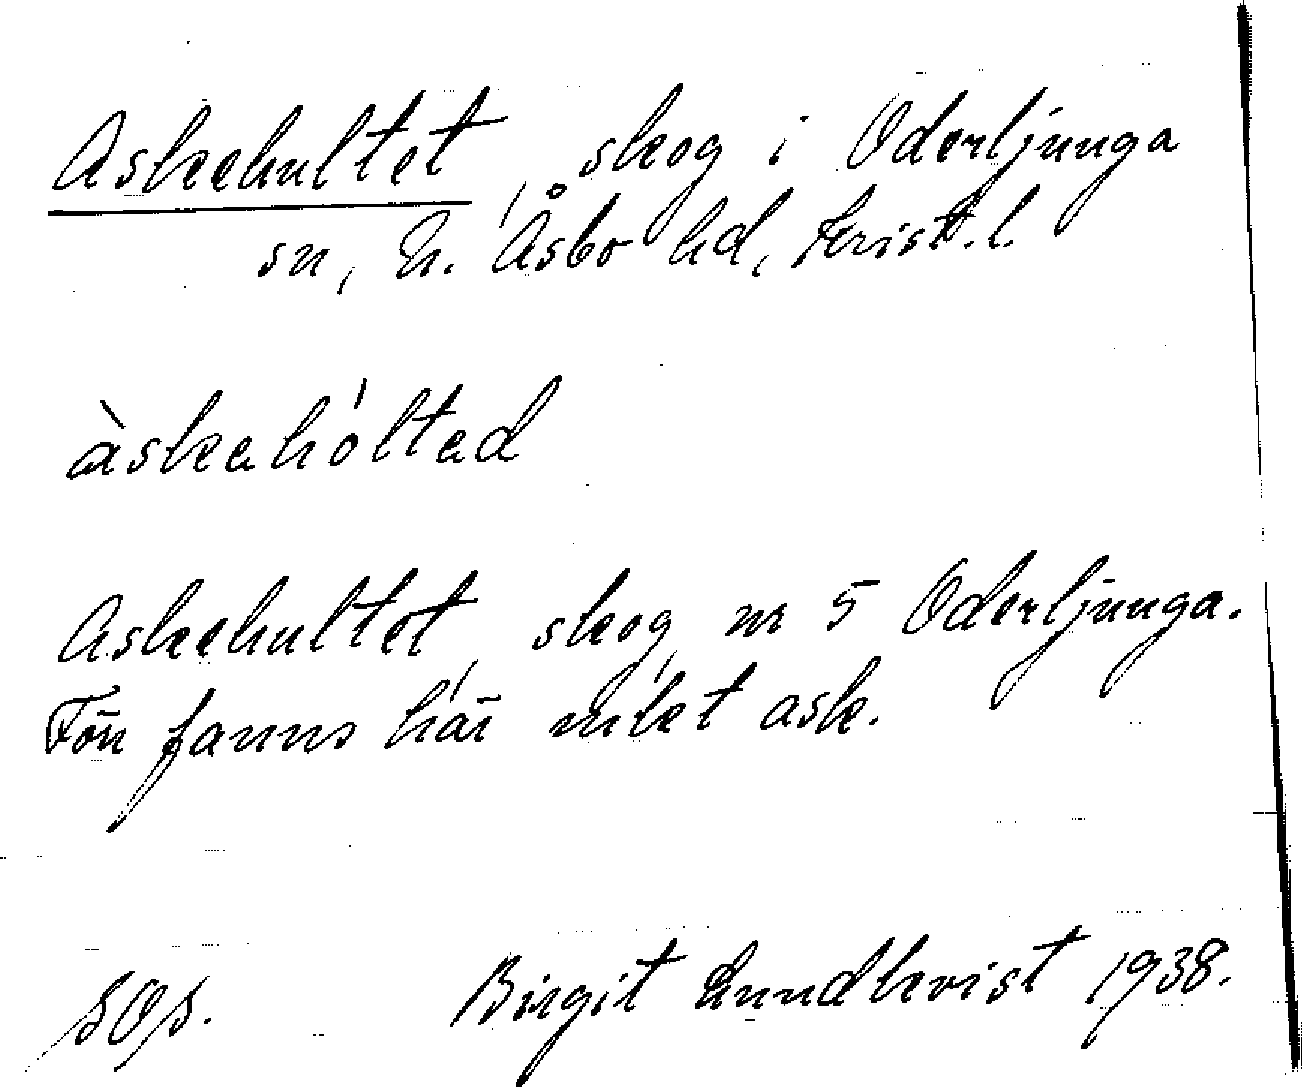 Askehultet, skog i Oderljunga
sn, N. Åsbo hd, Krist. l.
àskahóltad
Askehultet, skog, nr 5 Oderljunga.
Förr fanns här miket ask.
SOS. Birgit Lundkvist 1938.